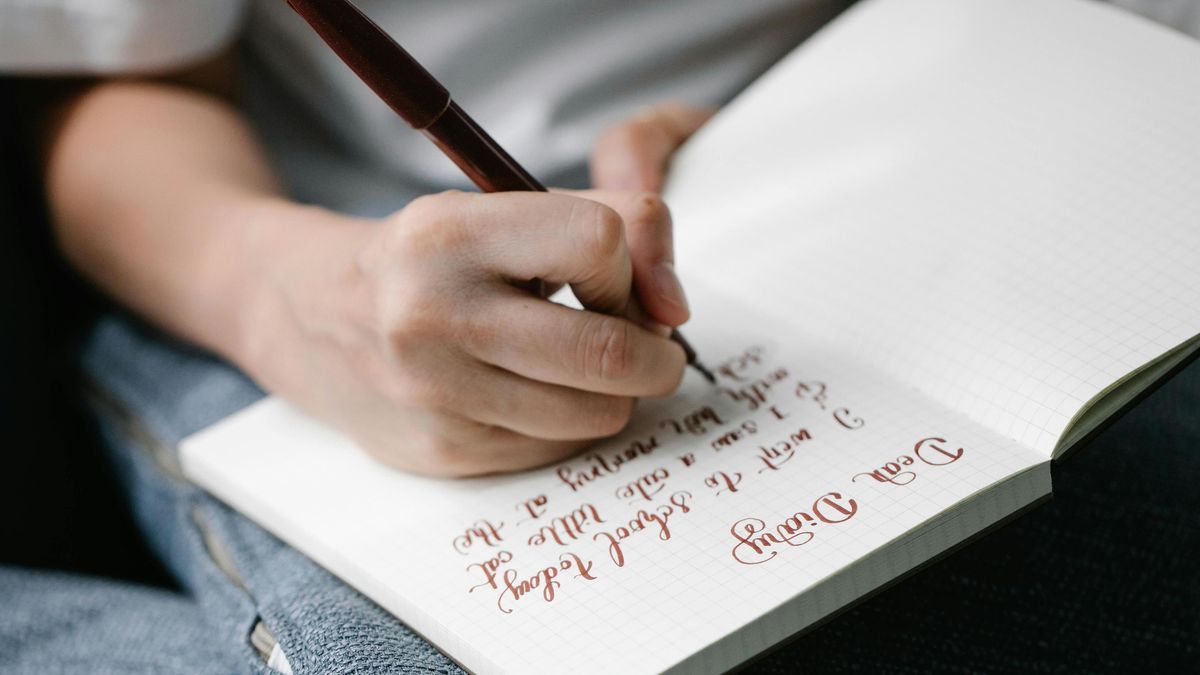 Dear Diary
I went to school today
& I saw a cute little cat
her at the